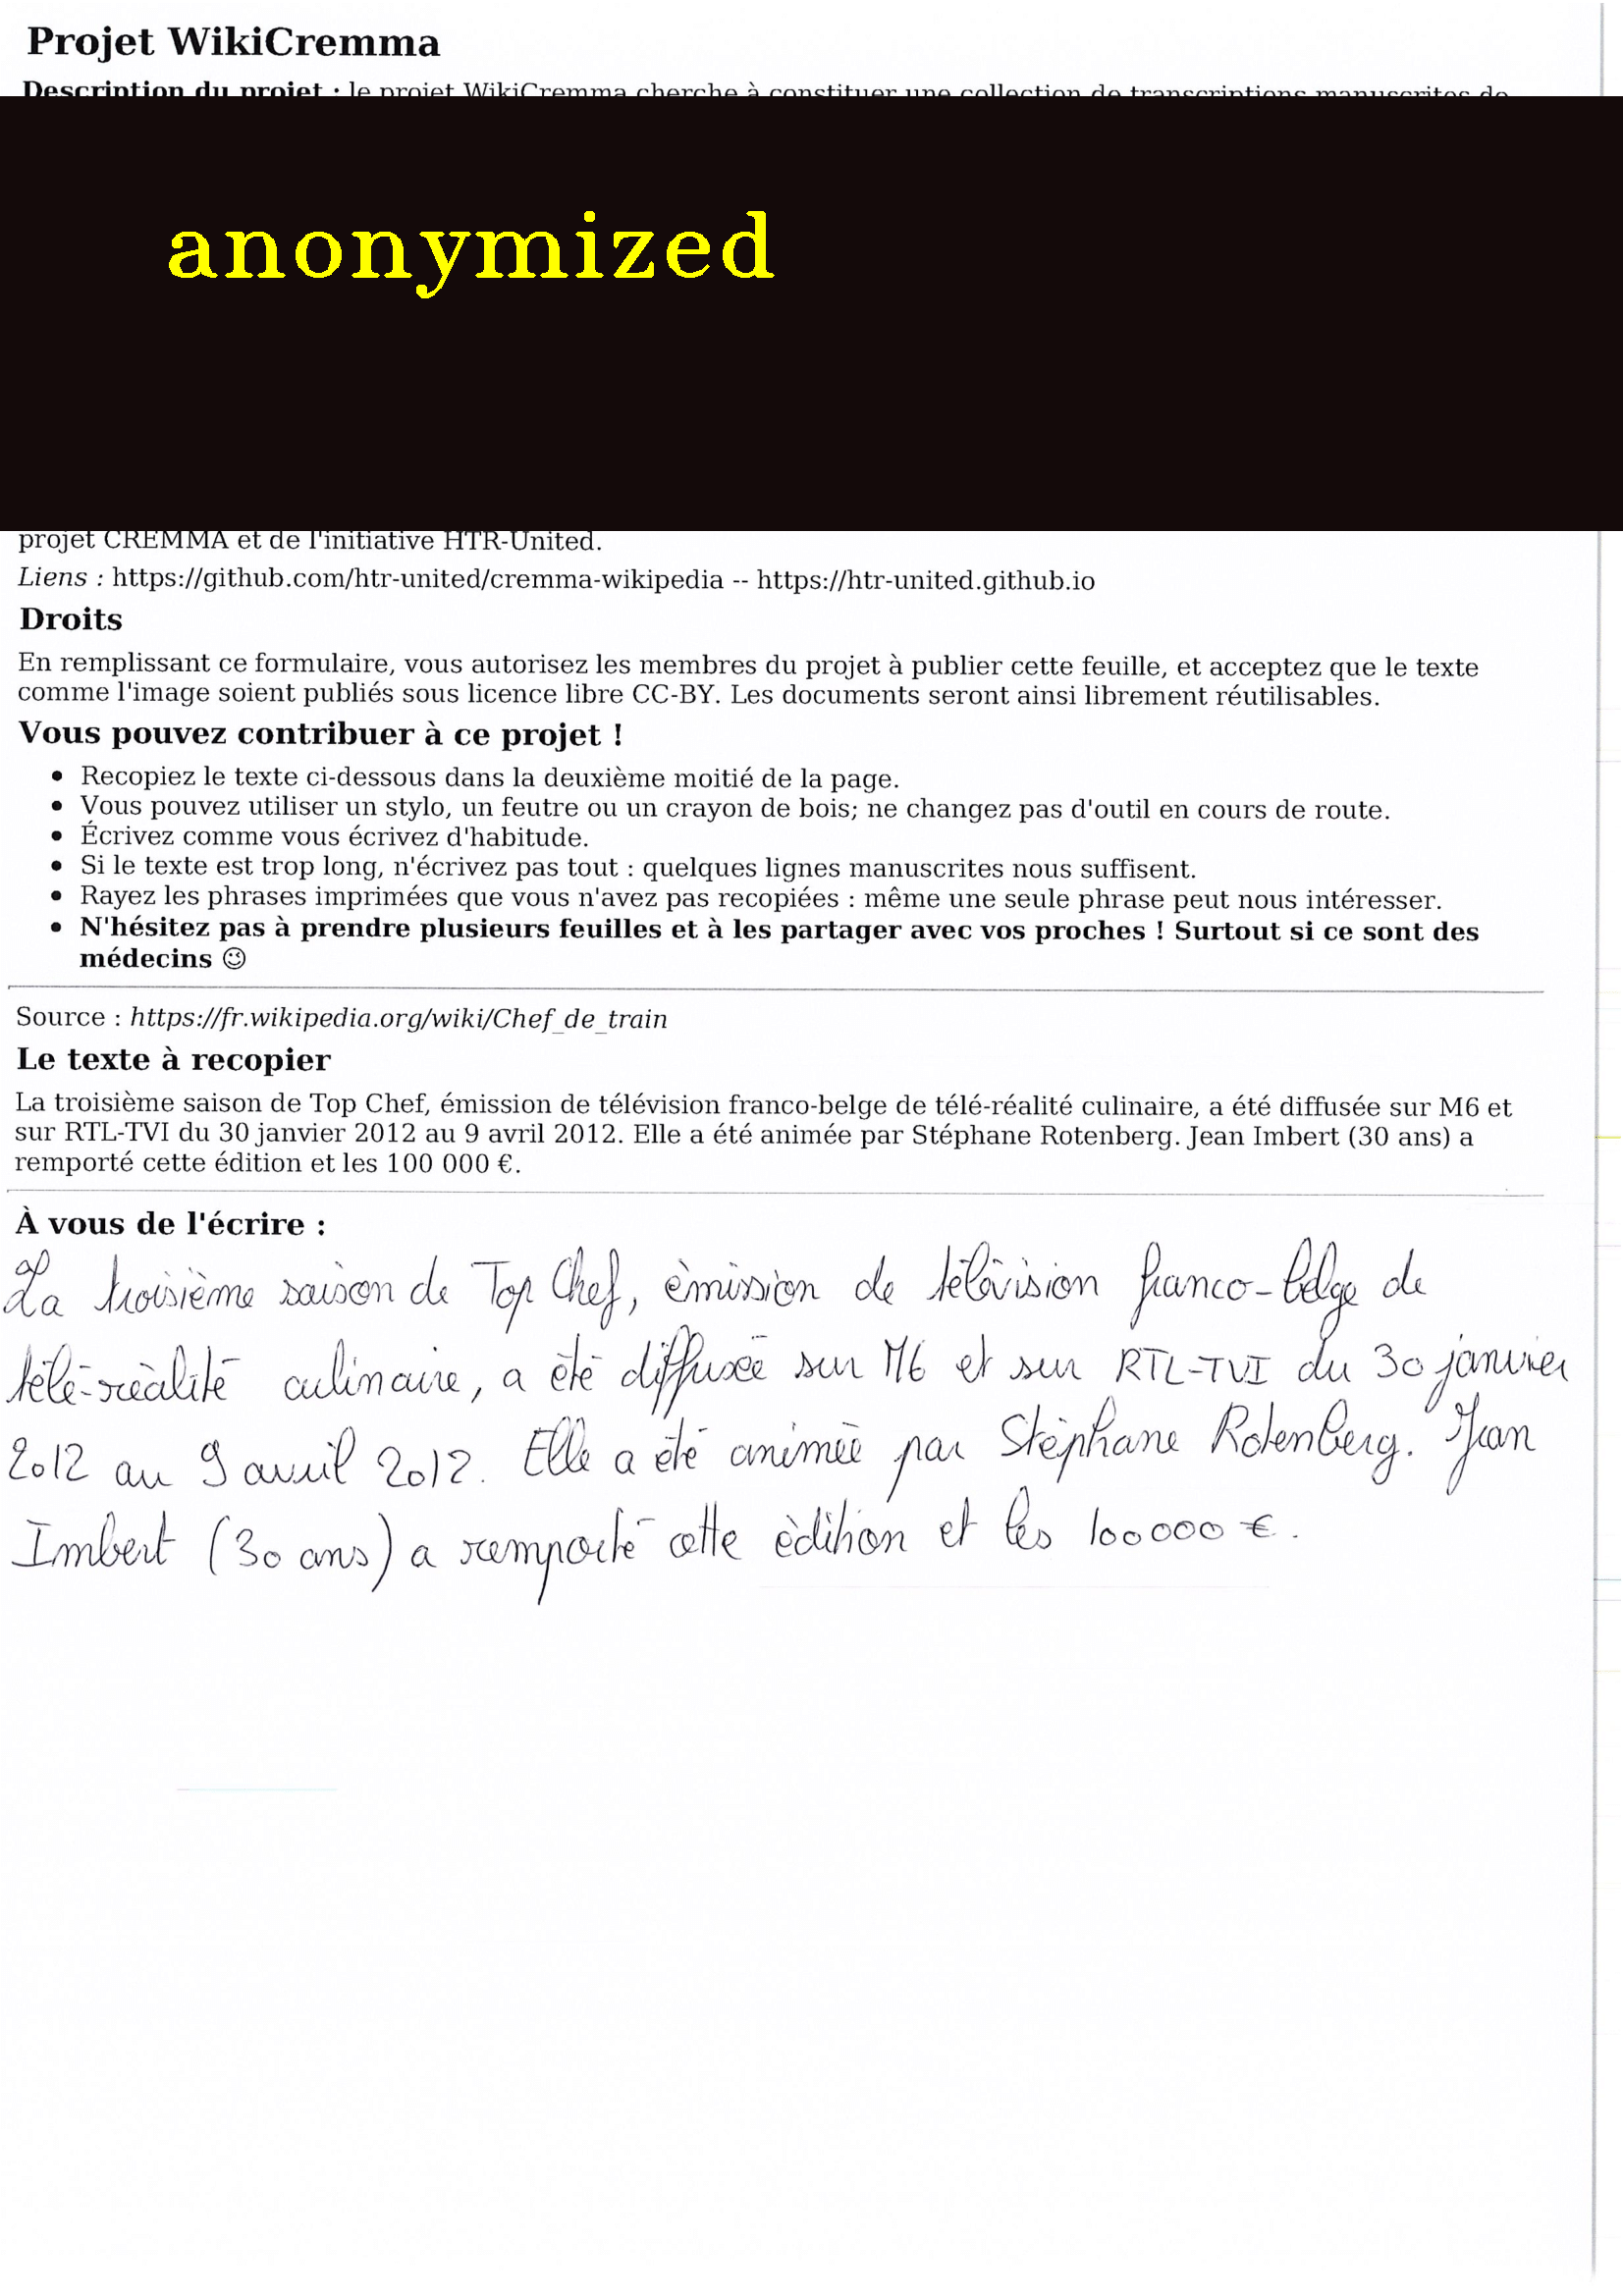 Projet WikiCremma
Description du projet : le projet WikiCremma cherche à constituer une collection de transcriptions manuscrites de
anonymized
projet CREMMA et de l'initiative HTR-United.
Liens : https://github.com/htr-united/cremma-wikipedia -- https://htr-united.github.io
Droits
En remplissant ce formulaire, vous autorisez les membres du projet à publier cette feuille, et acceptez que le texte
comme l'image soient publiés sous licence libre CC-BY. Les documents seront ainsi librement réutilisables.
Vous pouvez contribuer à ce projet !
• Recopiez le texte ci-dessous dans la deuxième moitié de la page.
• Vous pouvez utiliser un stylo, un feutre ou un crayon de bois; ne changez pas d'outil en cours de route.
• Écrivez comme vous écrivez d'habitude.
• Si le texte est trop long, n'écrivez pas tout : quelques lignes manuscrites nous suffisent.
• Rayez les phrases imprimées que vous n'avez pas recopiées : même une seule phrase peut nous intéresser.
• N'hésitez pas à prendre plusieurs feuilles et à les partager avec vos proches ! Surtout si ce sont des
médecins ☺
Source : https://fr.wikipedia.org/wiki/Chef_de_train
Le texte à recopier
La troisième saison de Top Chef, émission de télévision franco-belge de télé-réalité culinaire, a été diffusée sur M6 et
sur RTL-TVI du 30 janvier 2012 au 9 avril 2012. Elle a été animée par Stéphane Rotenberg. Jean Imbert (30 ans) a
remporté cette édition et les 100 000 €.
À vous de l'écrire :
La troisième saison de Top Chef, émission de télévision franco-belge de
télé-réalité culinaire, a été diffusée sur M6 et sur RTL-TVI du 30 janvier
2012 au 9 avril 2012. Elle a été animée par Stéphane Rotenberg. Jean
Imbert (30 ans) a remporté cette édition et les 100000 €.